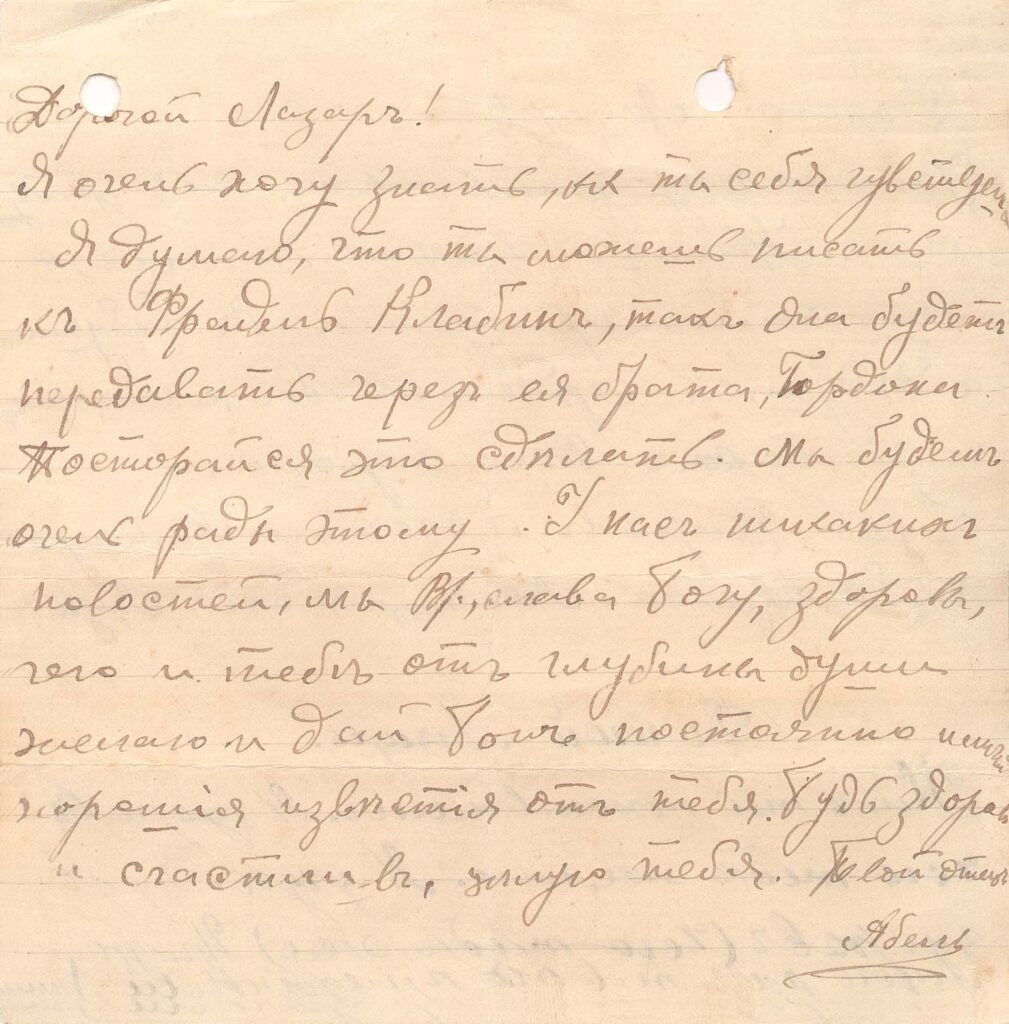 Дорогой Лазарь!
Я очень хочу знать, как ты себя чувствуешь
Я думаю, что ты можешь писать
къ Фрадель Клабинъ, такъ она будетъ
передавать черезъ ея брата, Гордона.
Постарайся это сдѣлать. Мы будемъ
очень рады этому. У насъ никакихъ
новостей, мы слава Богу, здоровы,
чего и тебѣ отъ глубины души
желаю и дай Богъ постоянно
хорошія извѣстія отъ тебя. Будь здоровъ
и счастливъ, цѣлую тебя. Твой отецъ
Абель